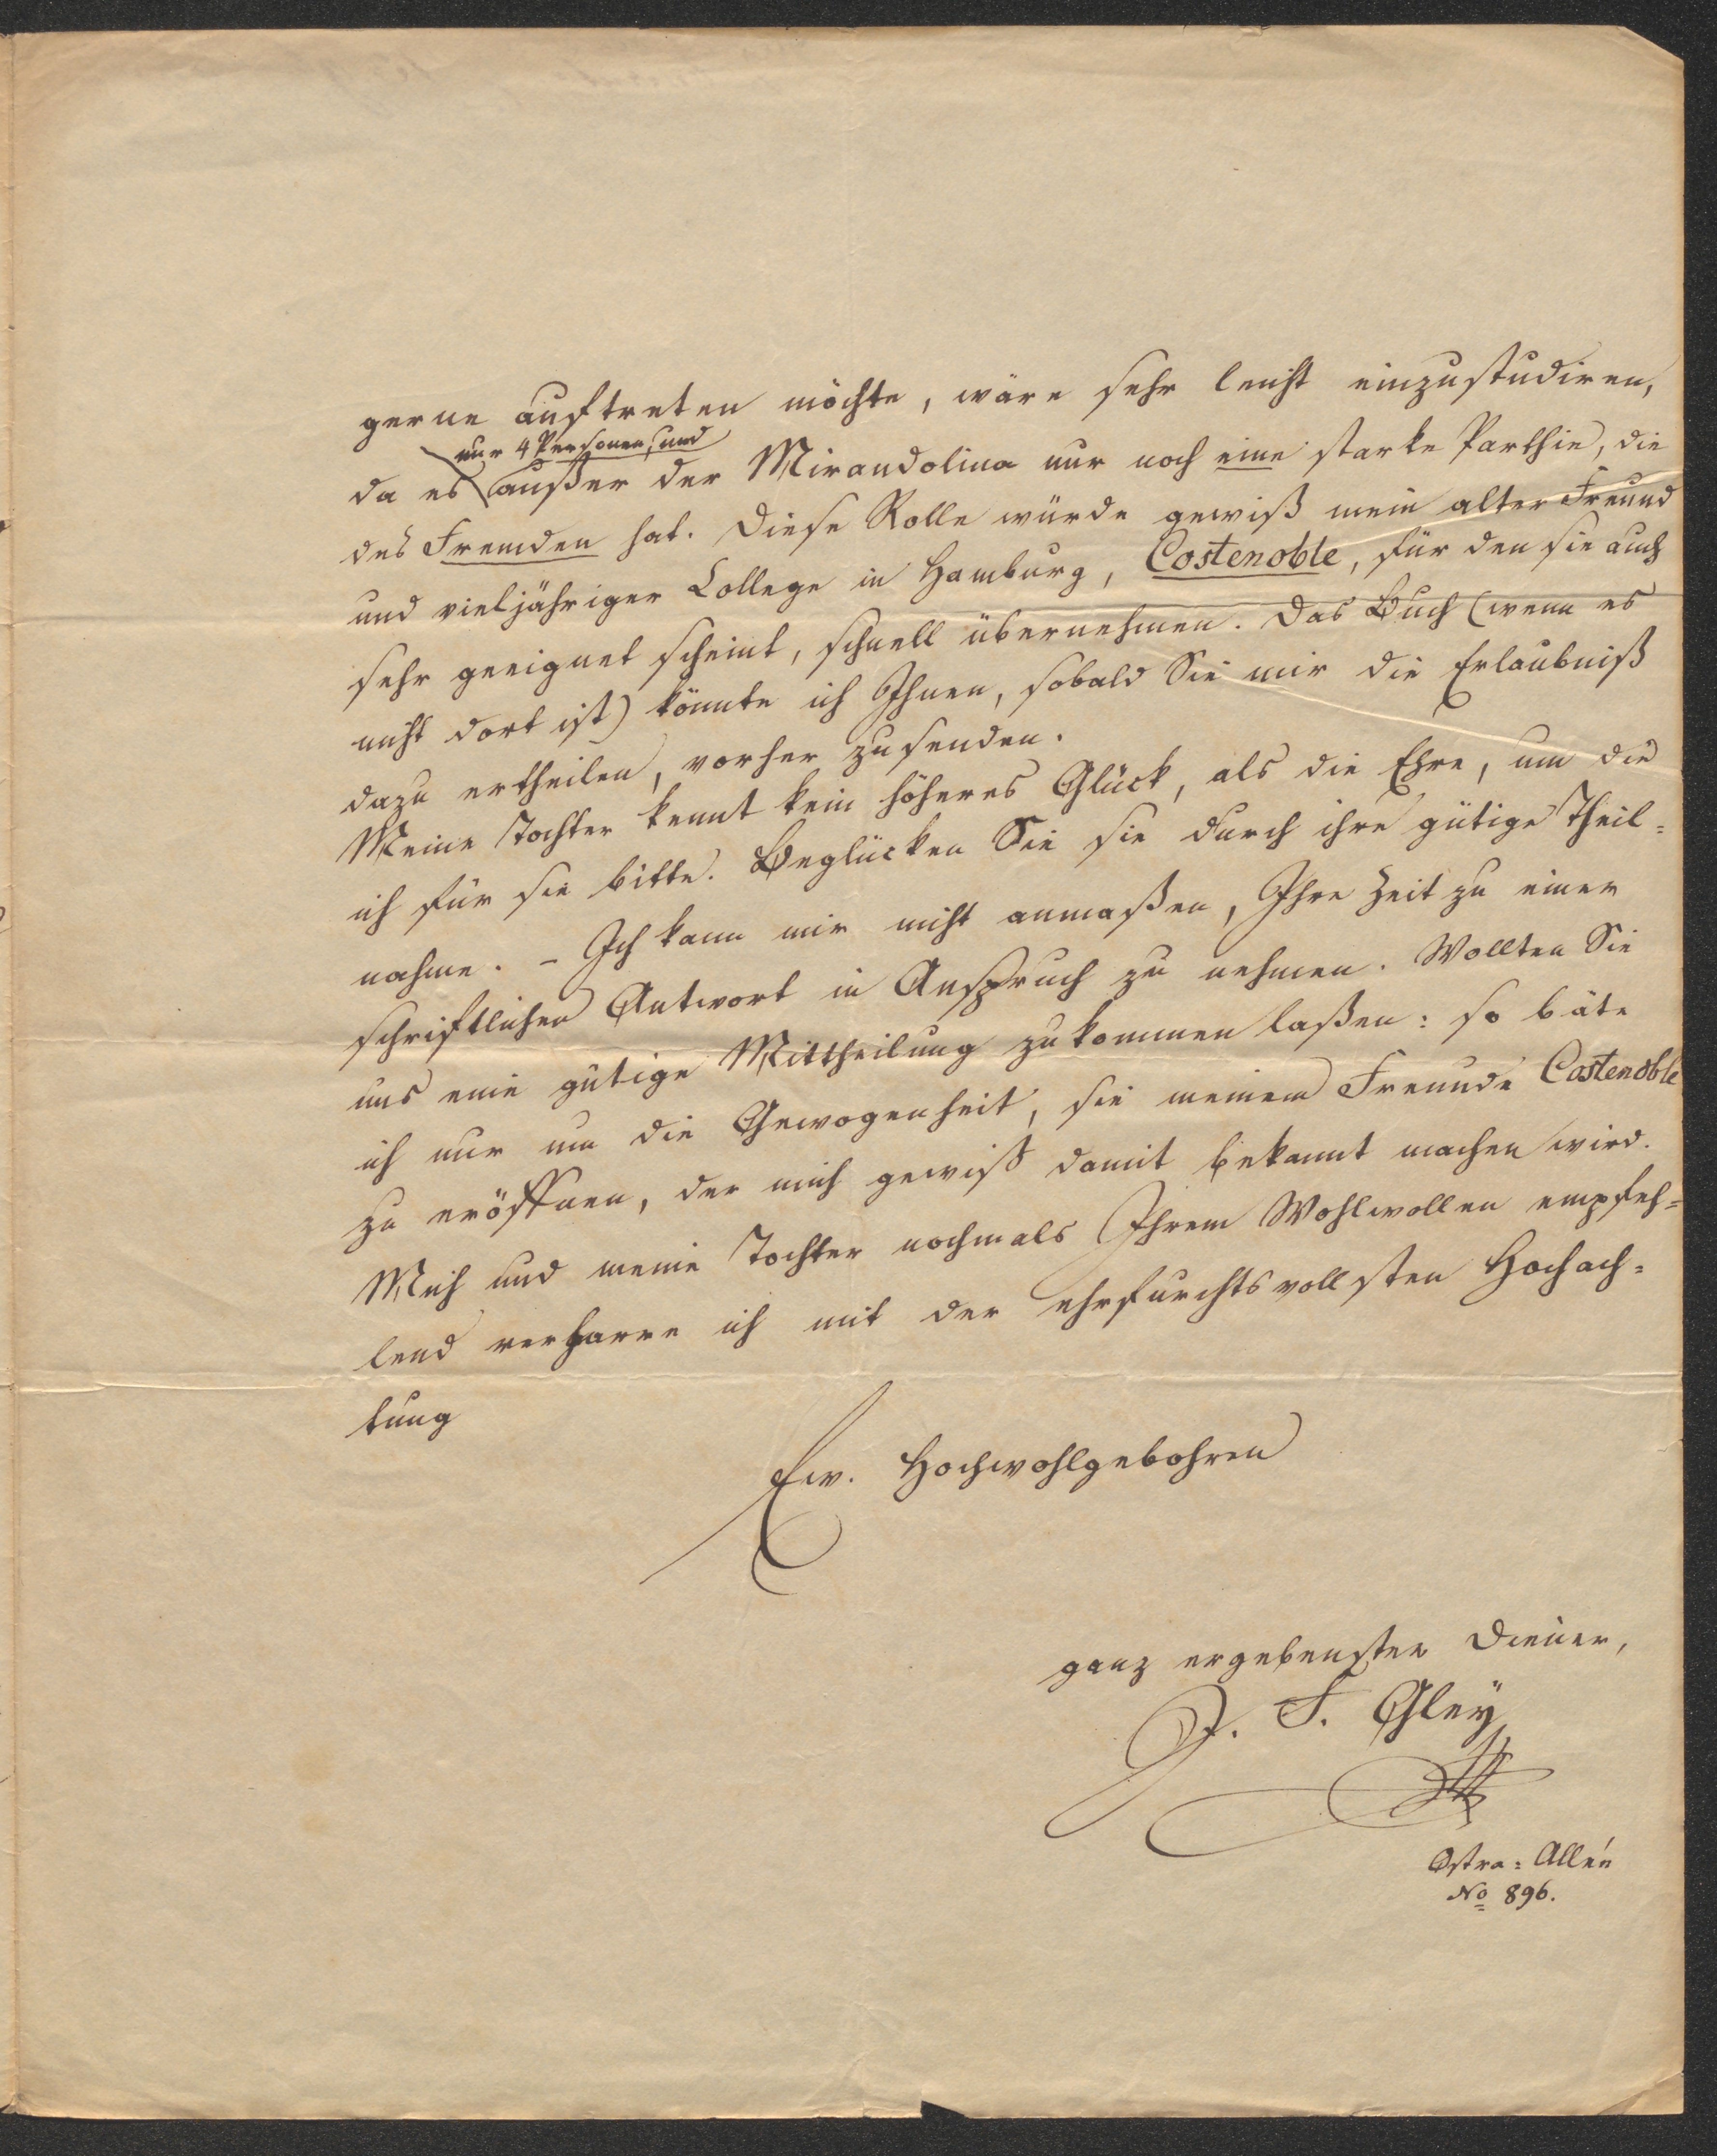 gerne auftreten möchte, wäre sehr leicht einzustudiren,
nur 4 Personen, und
da es außer der Mirandolina nur noch eine starke Parthie, die
des Fremden hat. Diese Rolle würde gewiß mein alter Freund
und vieljähriger College in Hamburg, Costenoble, für den sie auch
sehr geeignet scheint, schnell übernehmen. Das Buch (wenn es
nicht dort ist) könnte ich Ihnen, sobald Sie mir die Erlaubniß
dazu ertheilen, vorher zusenden.
Meine Tochter kennt kein höheres Glück, als die Ehre, um die
ich für sie bitte. Beglücken Sie sie durch ihre gütige Theil=
nahme. – Ich kann mir nicht anmaßen, Ihre Zeit zu einer
schriftlichen Antwort in Anspruch zu nehmen. Wollten Sie
uns eine gütige Mittheilung zukommen laßen: so bäte
ich nur um die Gewogenheit, sie meinem Freunde Costenoble
zu eröffnen, der mich gewiß damit bekannt machen wird.
Mich und meine Tochter nochmals Ihrem Wohlwollen empfeh=
lend verharre ich mit der ehrfurchtsvollsten Hochach=
tung
Ew. Hochwohlgebohren
ganz ergebenster Diener,
J. F. Gley
Ostra=Allée
No 896.